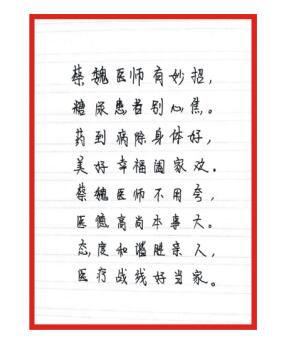 蔡魏医师有妙招，
糖尿患者别心焦。
药到病除身体好，
美好幸福阖家欢。
蔡魏医师不用夸，
医德高尚本事大。
态度和谐胜亲人，
医疗战线好当家。